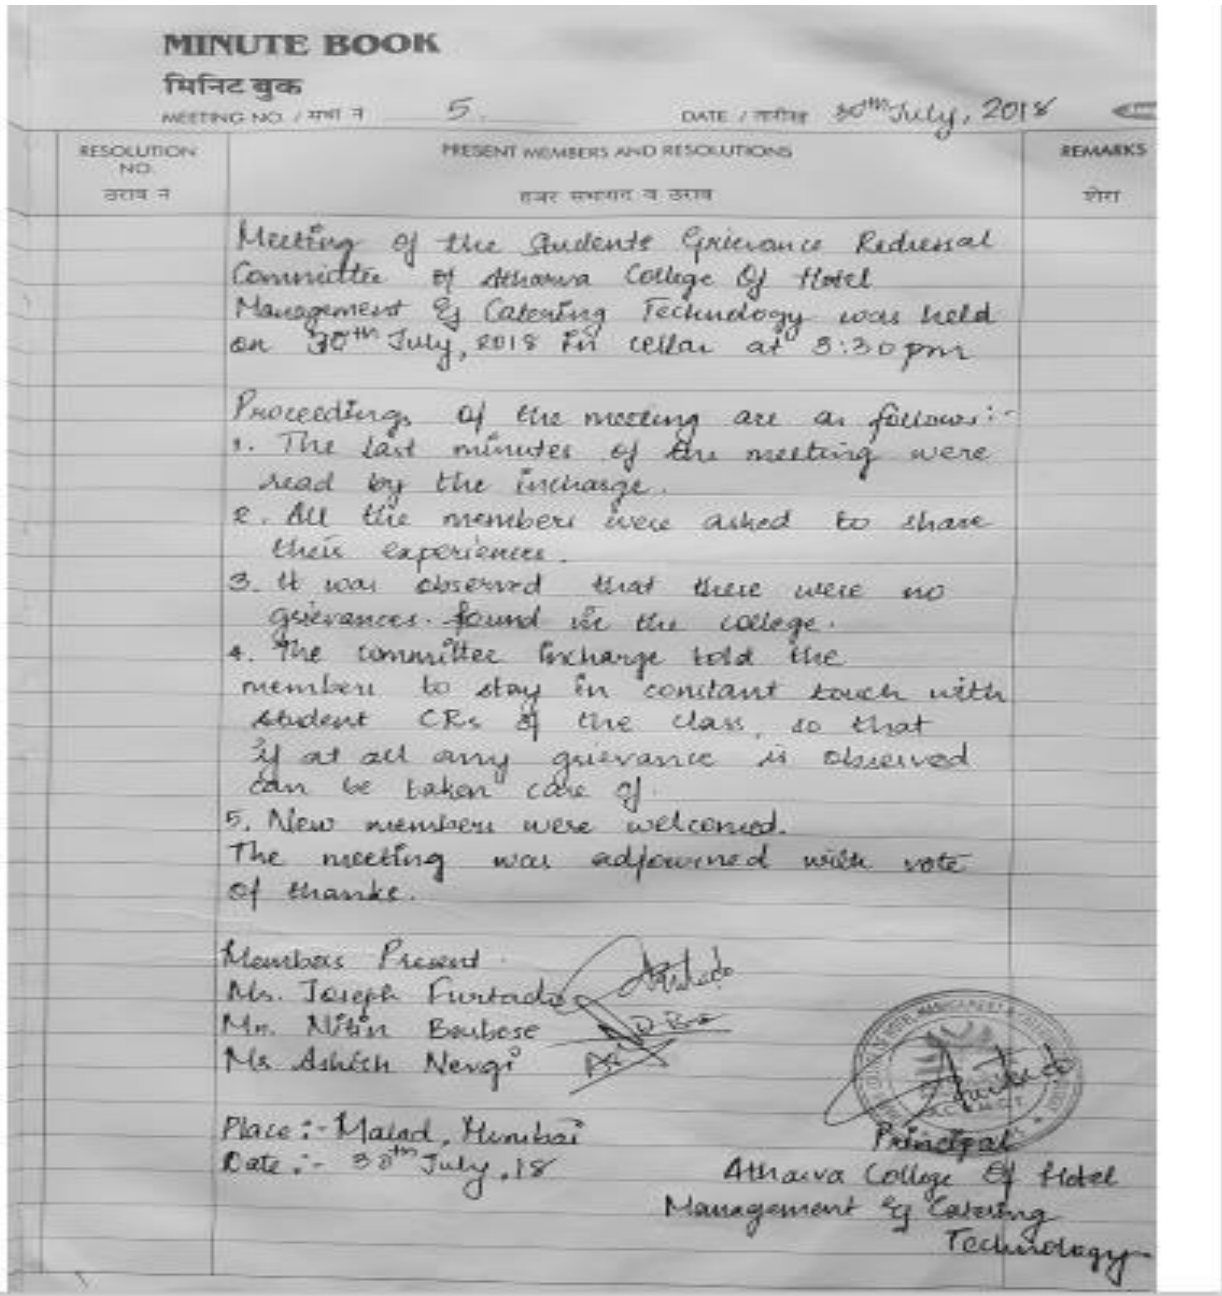 MINUTE BOOK
मिनिट बुक
MEETING NO. / सभा नं 5. DATE / तारीख 30th July, 2018
RESOLUTION NO. PRESENT MEMBERS AND RESOLUTIONS REMARKS
ठराव नं हजर सभासद व ठराव शेरा
Meeting of the Students Grievance Redressal
Committee of Atharva College Of Hotel
Management & Catering Technology was held
on 30th July, 2018 in cellar at 3:30 pm
Proceedings of the meeting are as follows:-
1. The last minutes of the meeting were
read by the incharge.
2. All the members were asked to share
their experiences.
3. It was observed that there were no
grievances. found in the college.
4. The committee incharge told the
members to stay in constant touch with
student CRs of the class, so that
if at all any grievance is observed
can be taken care of.
5. New members were welcomed.
The meeting was adjourned with vote
of thanks.
Members Present.
Mr. Joseph Furtado
Mr. Nitin Borbose
Mr Ashish Nevgi
Place:- Malad, Mumbai
Date:- 30th July, 18
Principal
Atharva College Of Hotel
Management & Catering
Technology